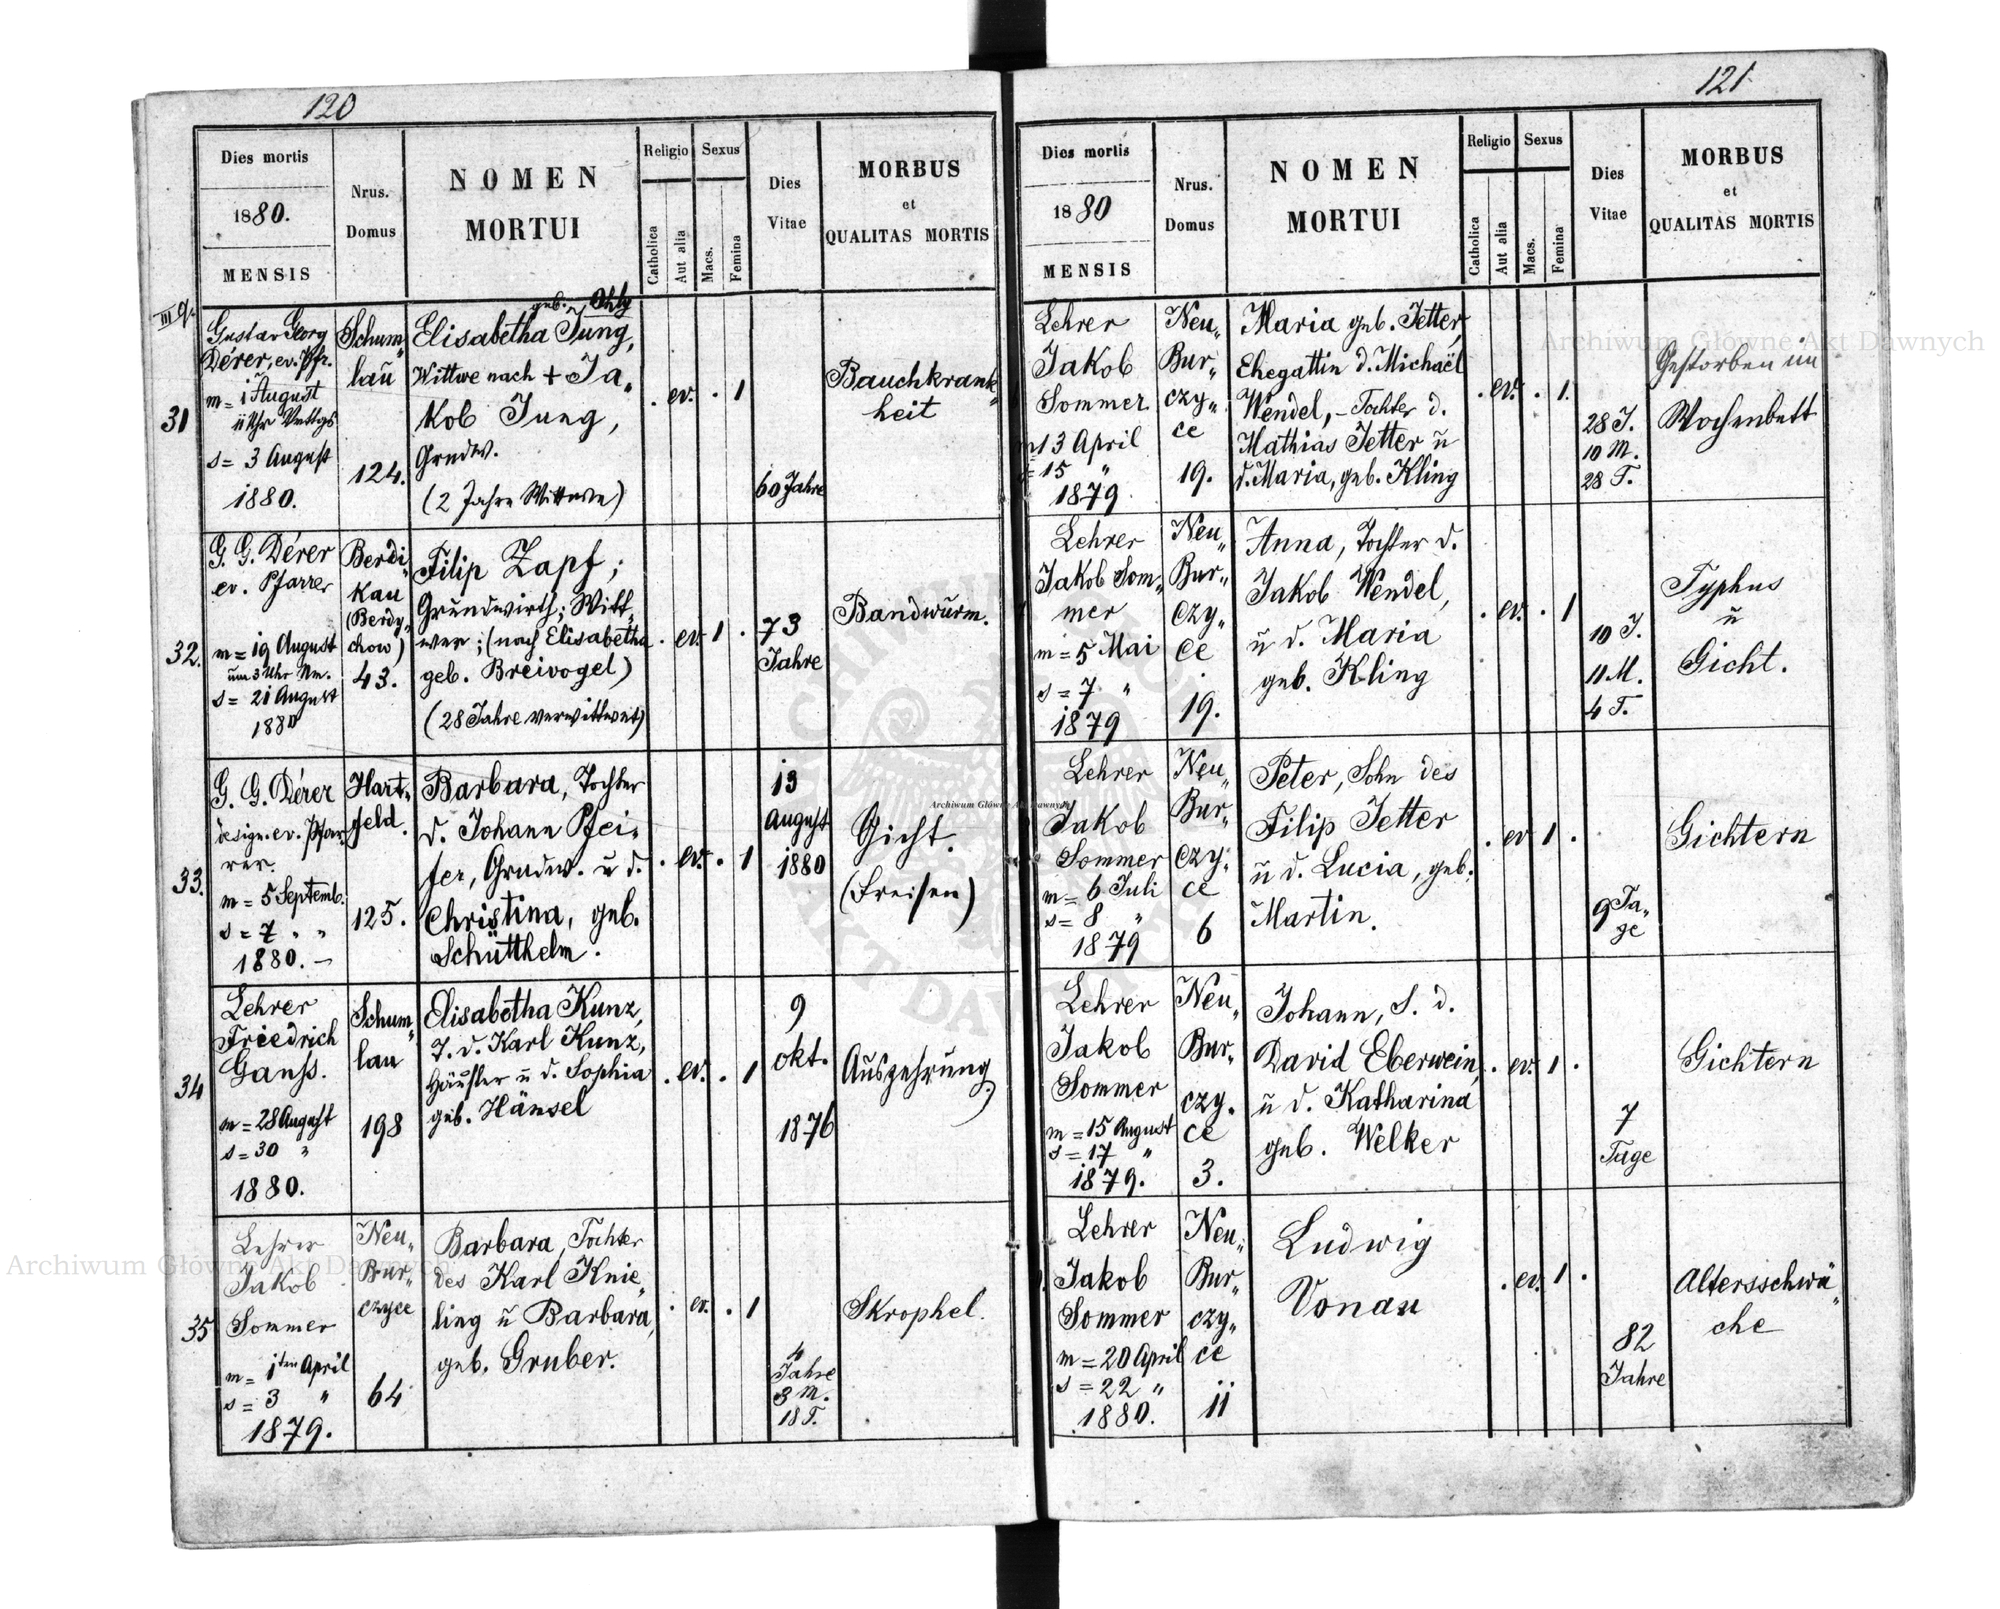 120
Dies mortis
1880.
MENSIS
Nrus.
Domus
NOMEN
MORTUI
Religio
Catholica
Aut alia
Sexus
Macs.
Femina
Dies
Vitae
MORBUS
et
QUALITAS MORTIS
III q.
31
Gustav Georg
Dérer, ev. Pfr.
m = 1 August
11 Uhr Vmttgs
s = 3 August
1880.
Schum„
lau
124.
geb. Ohly
Elisabetha Jung,
Wittwe nach + Ja„
kob Jung,
Grndw.
(2 Jahre Wittwe)
. ev. . 1
60 Jahre
Bauchkrank„
heit
32.
G. G. Dérer
ev. Pfarrer
m = 19 August
um 3 Uhr Nm.
s = 21 August
1880
Berdi„
kau
(Berdy„
chow)
43.
Filip Zapf;
Grundwirth; Witt„
wer; (nach Elisabetha
geb. Breivogel)
(28 Jahre verwittwet)
. ev. 1 .
73
Jahre
Bandwurm.
33.
G. G. Dérer
design. ev. Pfar„
rer.
m = 5 Septemb.
s = 7 " "
1880. –
Hart„
feld.
125.
Barbara, Tochter
d. Johann Pfei„
fer, Grndw. u d.
Christina, geb.
Schütthelm.
. ev. . 1
13
August
1880
Gicht.
(Freisen)
34
Lehrer
Friedrich
Ganss.
m = 28 August
s = 30 "
1880.
Schum„
lau
198
Elisabetha Kunz,
T. d. Karl Kunz,
Häusler u d. Sophia
geb. Hänsel
. ev. . 1
9
okt.
1876
Auszehrung.
35
Lehrer
Jakob
Sommer
m = 1ten April
s = 3 "
1879.
Neu„
Bur„
czyce
64
Barbara, Tochter
des Karl Knie„
ling u Barbara,
geb. Gruber.
. ev. . 1
4
Jahre
3 M.
18 T.
Skrophel.
121
Dies mortis
1880
MENSIS
Nrus.
Domus
NOMEN
MORTUI
Religio
Catholica
Aut alia
Sexus
Macs.
Femina
Dies
Vitae
MORBUS
et
QUALITAS MORTIS
Lehrer
Jakob
Sommer
m 13 April
s = 15 "
1879
Neu„
Bur„
czy„
ce
19.
Maria geb. Jetter,
Ehegattin d. Michaël
Wendel, – Tochter d.
Mathias Jetter u
d. Maria, geb. Kling
. ev. . 1.
28 J.
10 M.
28 T.
Gestorben im
Wochenbett
Lehrer
Jakob Som„
mer
m = 5 Mai
s = 7 "
1879
Neu„
Bur„
czy„
ce
19.
Anna, Tochter d.
Jakob Wendel,
u d. Maria
geb. Kling
. ev. . 1
10 J.
11 M.
4 T.
Typhus
u
Gicht.
Lehrer
Jakob
Sommer
m = 6 Juli
s = 8 "
1879
Neu„
Bur„
czy„
ce
6
Peter, Sohn des
Filip Jetter
u d. Lucia, geb.
Martin.
. ev 1 .
9 Ta„
ge
Gichtern
Lehrer
Jakob
Sommer
m = 15 August
s = 17 "
1879.
Neu„
Bur„
czy„
ce
3.
Johann, S. d.
David Eberwein,
u d. Katharina
geb. Welker
. ev. 1 .
7
Tage
Gichtern
Lehrer
Jakob
Sommer
m = 20 April
s = 22 "
1880.
Neu„
Bur„
czy„
ce
11
Ludwig
Vonau
. ev. 1 .
82
Jahre
Altersschwä„
che
Archiwum Główne Akt Dawnych
Archiwum Główne Akt Dawnych
Archiwum Główne Akt Dawnych